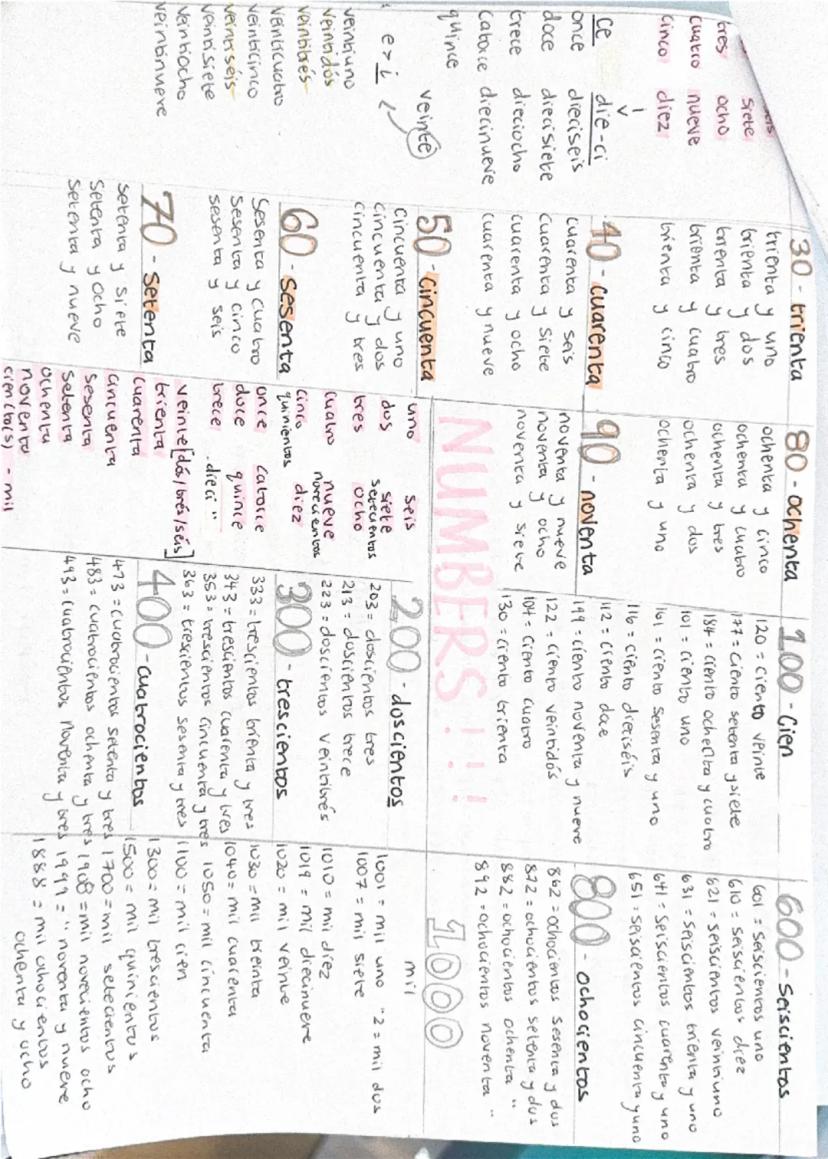 eis
siete
tres ocho
cuatro nueve
cinco diez
i
ce die-ci
once dieciseis
doce diecisiete
trece dieciocho
catorce diecinueve
quince
veinte
e > i
veintiuno
veintidós
veintitrés
veinticuatro
veinticinco
veintiséis
veintisiete
veintiocho
veintinueve
30 - trienta
trienta y uno
trienta y dos
trienta y tres
trienta y cuatro
trienta y cinco
40 - cuarenta
cuarenta y seis
cuarenta y siete
cuarenta y ocho
cuarenta y nueve
50 - cincuenta
cincuenta y uno
cincuenta y dos
cincuenta y tres
60 - sesenta
sesenta y cuatro
sesenta y cinco
sesenta y seis
70 - setenta
setenta y siete
setenta y ocho
setenta y nueve
80 - ochenta
ochenta y cinco
ochenta y cuatro
ochenta y tres
ochenta y dos
ochenta y uno
90 - noventa
noventa y nueve
noventa y ocho
noventa y siete
NUMBERS!!!
uno seis
dos siete
setecientos
tres ocho
cuatro nueve
novecientos
cinco diez
quinientos
once catorce
doce quince
trece dieci"
veinte [dós/trés/séis]
trienta
cuarenta
cincuenta
sesenta
setenta
ochenta
noventa
cien(to(s) - mil
100 - cien
120 = ciento veinte
177 = ciento setenta y siete
184 = ciento ochenta y cuatro
101 = ciento uno
161 = ciento sesenta y uno
116 = ciento dieciséis
112 = ciento doce
199 = ciento noventa y nueve
122 = ciento veintidós
104 = ciento cuatro
130 = ciento trienta
200 - doscientos
203 = doscientos tres
213 = doscientos trece
223 = doscientos veintitrés
300 - trescientos
333 = trescientos trienta y tres
343 = trescientos cuarenta y tres
353 = trescientos cincuenta y tres
363 = trescientos sesenta y tres
400 - cuatrocientos
473 = cuatrocientos setenta y tres
483 = cuatrocientos ochenta y tres
493 = cuatrocientos noventa y tres
600 - seiscientos
601 = seiscientos uno
610 = seiscientos diez
621 = seiscientos veintiuno
631 = seiscientos trienta y uno
641 = seiscientos cuarenta y uno
651 = seiscientos cincuenta y uno
800 - ochocientos
862 = ochocientos sesenta y dos
872 = ochocientos setenta y dos
882 = ochocientos ochenta "
892 = ochocientos noventa "
1000
mil
1001 = mil uno "2 = mil dos
1007 = mil siete
1010 = mil diez
1019 = mil diecinueve
1020 = mil veinte
1030 = mil treinta
1040 = mil cuarenta
1050 = mil cincuenta
1100 = mil cien
1300 = mil trescientos
1500 = mil quinientos
1700 = mil setecientos
1908 = mil novecientos ocho
1999 = " noventa y nueve
1888 = mil ochocientos
ochenta y ocho